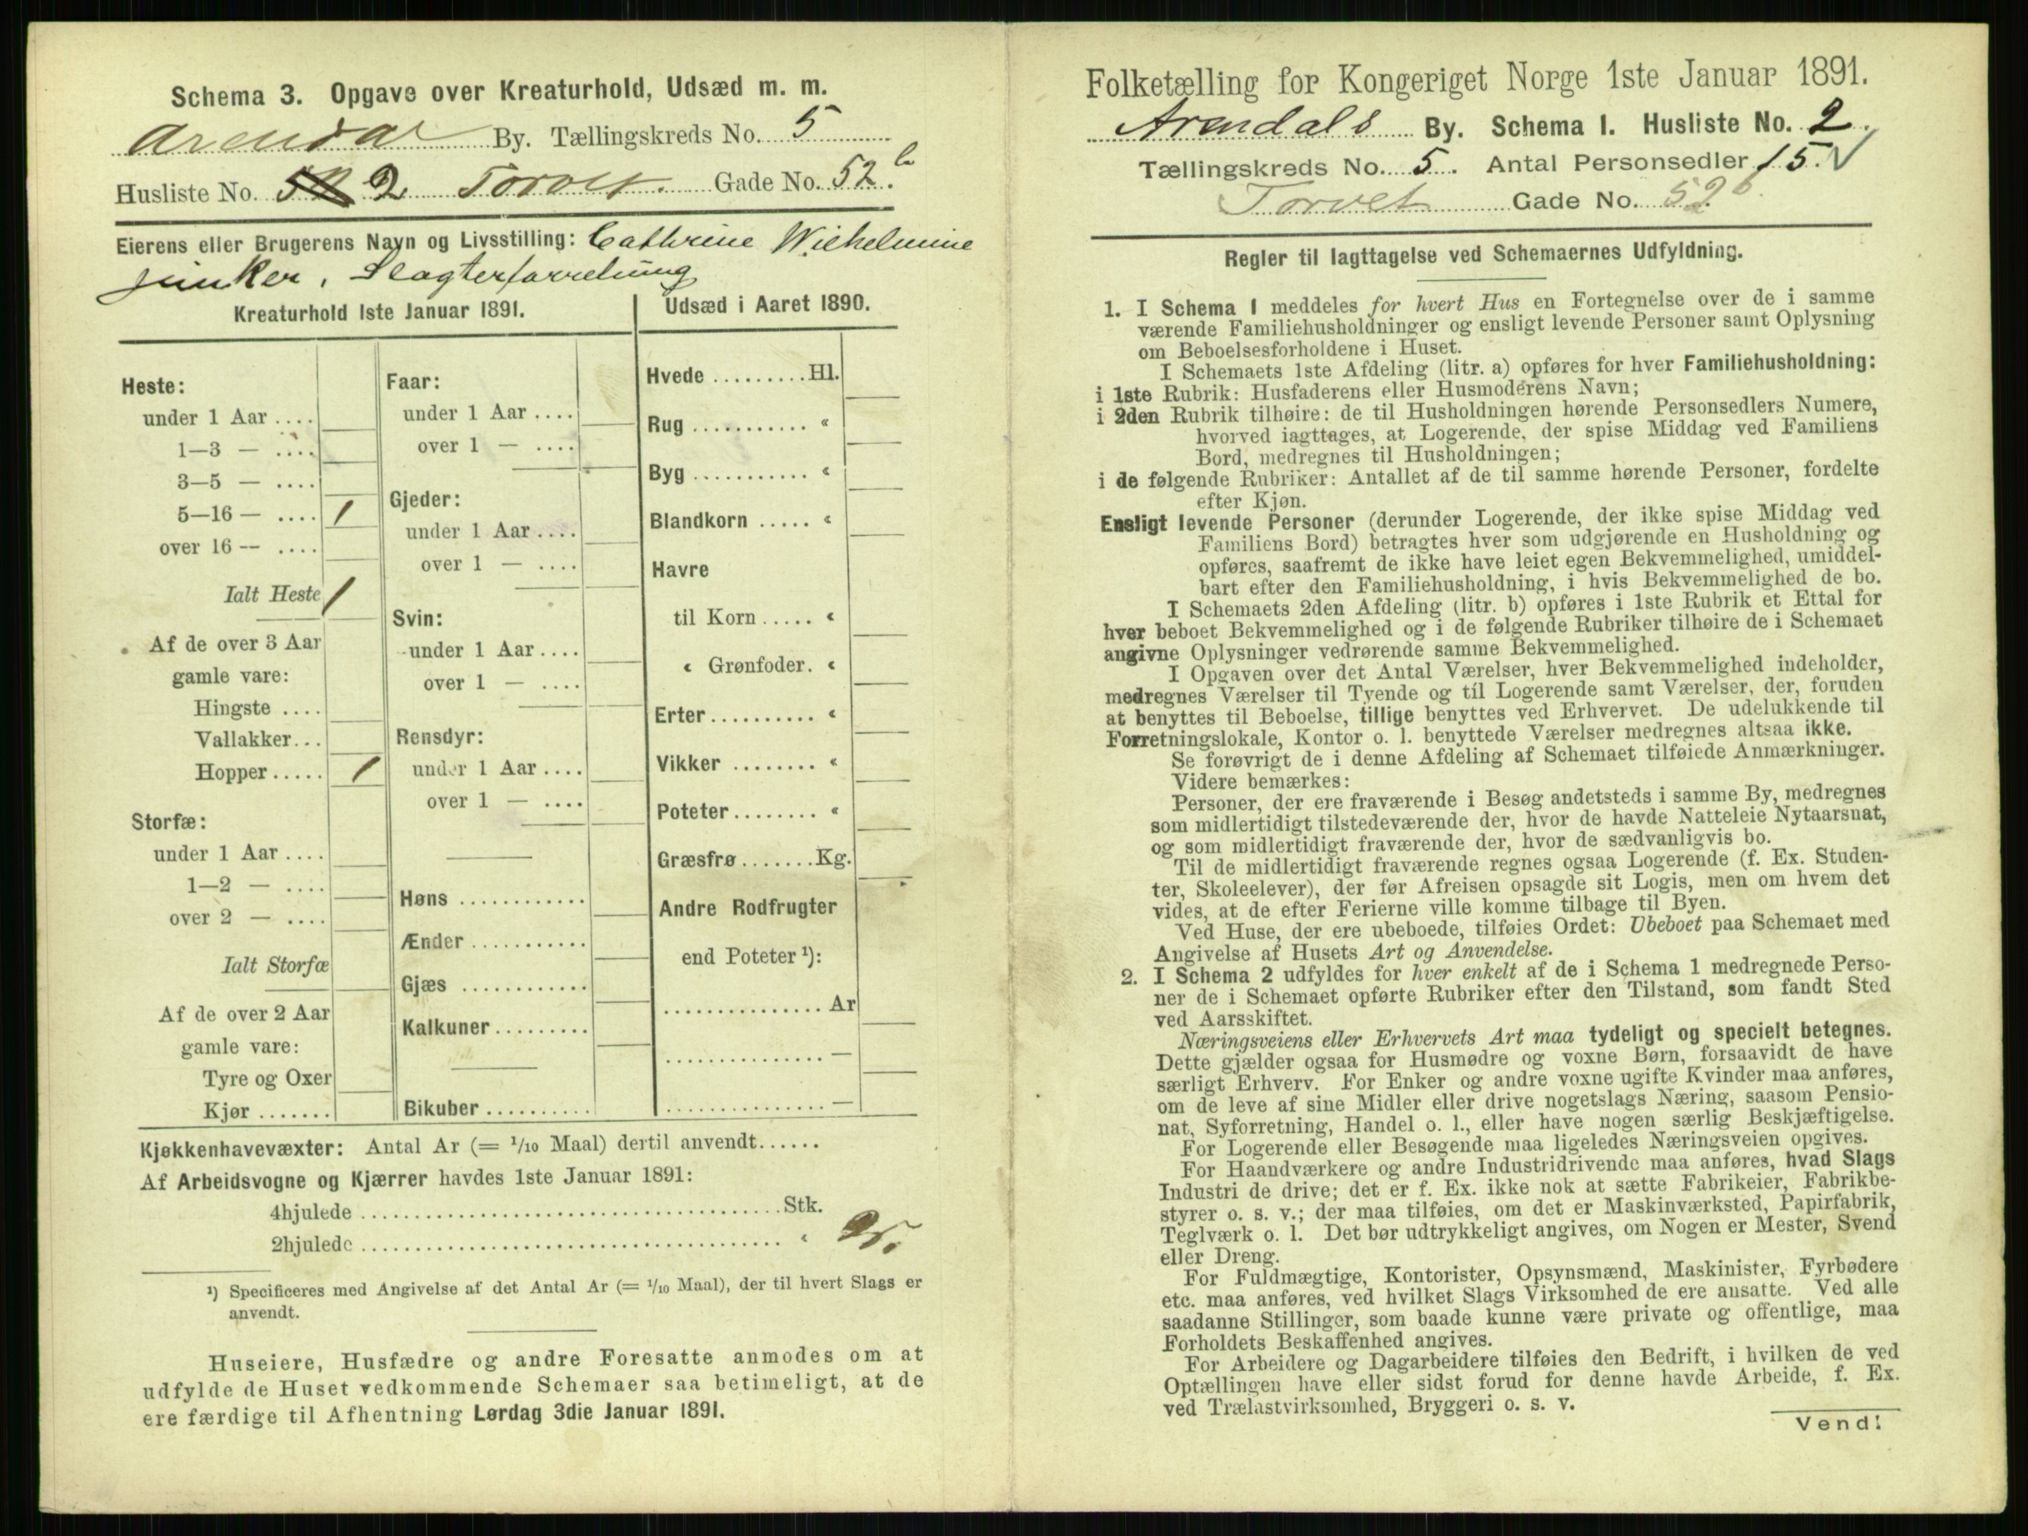 Schema 3. Opgave over Kreaturhold, Udsæd m. m.
Arendal By. Tællingskreds No. 5
Husliste No. 2 Torvet Gade No. 52 b
Eierens eller Brugerens Navn og Livsstilling: Cathrine Wilhelmine
Junker, Slagterforretning
Kreaturhold 1ste Januar 1891.
Heste:
under 1 Aar ....
1—3 — ....
3—5 — ....
5—16 — .... 1
over 16 — ....
Ialt Heste 1
Af de over 3 Aar
gamle vare:
Hingste ....
Vallakker...
Hopper ..... 1
Storfæ:
under 1 Aar ....
1—2 — ....
over 2 — ....
Ialt Storfæ
Af de over 2 Aar
gamle vare:
Tyre og Oxer
Kjør .......
Faar:
under 1 Aar ....
over 1 — ....
Gjeder:
under 1 Aar ....
over 1 — ....
Svin:
under 1 Aar ....
over 1 — ....
Rensdyr:
under 1 Aar ....
over 1 — ....
Høns ............
Ænder ...........
Gjæs ............
Kalkuner .........
Bikuber ..........
Udsæd i Aaret 1890.
Hvede .........Hl.
Rug ........... «
Byg ........... «
Blandkorn ..... «
Havre
til Korn ..... «
« Grønfoder. «
Erter .......... «
Vikker ........ «
Poteter ........ «
Græsfrø .......Kg.
Andre Rodfrugter
end Poteter ¹):
............... Ar
............... —
............... —
Kjøkkenhavevæxter: Antal Ar (= 1/10 Maal) dertil anvendt......
Af Arbeidsvogne og Kjærrer havdes 1ste Januar 1891:
4hjulede ........................................Stk.
2hjulede ........................................ «
¹) Specificeres med Angivelse af det Antal Ar (= 1/10 Maal), der til hvert Slags er
anvendt.
Huseiere, Husfædre og andre Foresatte anmodes om at
udfylde de Huset vedkommende Schemaer saa betimeligt, at de
ere færdige til Afhentning Lørdag 3die Januar 1891.
Folketælling for Kongeriget Norge 1ste Januar 1891.
Arendals By. Schema 1. Husliste No. 2.
Tællingskreds No. 5. Antal Personsedler 15.
Torvet Gade No. 52 b
Regler til Iagttagelse ved Schemaernes Udfyldning.
1. I Schema 1 meddeles for hvert Hus en Fortegnelse over de i samme
værende Familiehusholdninger og ensligt levende Personer samt Oplysning
om Beboelsesforholdene i Huset.
I Schemaets 1ste Afdeling (litr. a) opføres for hver Familiehusholdning:
i 1ste Rubrik: Husfaderens eller Husmoderens Navn;
i 2den Rubrik tilhøire: de til Husholdningen hørende Personsedlers Numere,
hvorved iagttages, at Logerende, der spise Middag ved Familiens
Bord, medregnes til Husholdningen;
i de følgende Rubriker: Antallet af de til samme hørende Personer, fordelte
efter Kjøn.
Ensligt levende Personer (derunder Logerende, der ikke spise Middag ved
Familiens Bord) betragtes hver som udgjørende en Husholdning og
opføres, saafremt de ikke have leiet egen Bekvemmelighed, umiddel-
bart efter den Familiehusholdning, i hvis Bekvemmelighed de bo.
I Schemaets 2den Afdeling (litr. b) opføres i 1ste Rubrik et Ettal for
hver beboet Bekvemmelighed og i de følgende Rubriker tilhøire de i Schemaet
angivne Oplysninger vedrørende samme Bekvemmelighed.
I Opgaven over det Antal Værelser, hver Bekvemmelighed indeholder,
medregnes Værelser til Tyende og til Logerende samt Værelser, der, foruden
at benyttes til Beboelse, tillige benyttes ved Erhvervet. De udelukkende til
Forretningslokale, Kontor o. l. benyttede Værelser medregnes altsaa ikke.
Se forøvrigt de i denne Afdeling af Schemaet tilføiede Anmærkninger.
Videre bemærkes:
Personer, der ere fraværende i Besøg andetsteds i samme By, medregnes
som midlertidigt tilstedeværende der, hvor de havde Natteleie Nytaarsnat,
og som midlertidigt fraværende der, hvor de sædvanligvis bo.
Til de midlertidigt fraværende regnes ogsaa Logerende (f. Ex. Studen-
ter, Skoleelever), der før Afreisen opsagde sit Logis, men om hvem det
vides, at de efter Ferierne ville komme tilbage til Byen.
Ved Huse, der ere ubeboede, tilføies Ordet: Ubeboet paa Schemaet med
Angivelse af Husets Art og Anvendelse.
2. I Schema 2 udfyldes for hver enkelt af de i Schema 1 medregnede Perso-
ner de i Schemaet opførte Rubriker efter den Tilstand, som fandt Sted
ved Aarsskiftet.
Næringsveiens eller Erhvervets Art maa tydeligt og specielt betegnes.
Dette gjælder ogsaa for Husmødre og voxne Børn, forsaavidt de have
særligt Erhverv. For Enker og andre voxne ugifte Kvinder maa anføres,
om de leve af sine Midler eller drive nogetslags Næring, saasom Pensio-
nat, Syforretning, Handel o. l., eller have nogen særlig Beskjæftigelse.
For Logerende eller Besøgende maa ligeledes Næringsveien opgives.
For Haandværkere og andre Industridrivende maa anføres, hvad Slags
Industri de drive; det er f. Ex. ikke nok at sætte Fabrikeier, Fabrikbe-
styrer o. s. v.; der maa tilføies, om det er Maskinværksted, Papirfabrik,
Teglværk o. l. Det bør udtrykkeligt angives, om Nogen er Mester, Svend
eller Dreng.
For Fuldmægtige, Kontorister, Opsynsmænd, Maskinister, Fyrbødere
etc. maa anføres, ved hvilket Slags Virksomhed de ere ansatte. Ved alle
saadanne Stillinger, som baade kunne være private og offentlige, maa
Forholdets Beskaffenhed angives.
For Arbeidere og Dagarbeidere tilføies den Bedrift, i hvilken de ved
Optællingen have eller sidst forud for denne havde Arbeide, f. Ex.
ved Trælastvirksomhed, Bryggeri o. s. v.
Vend!